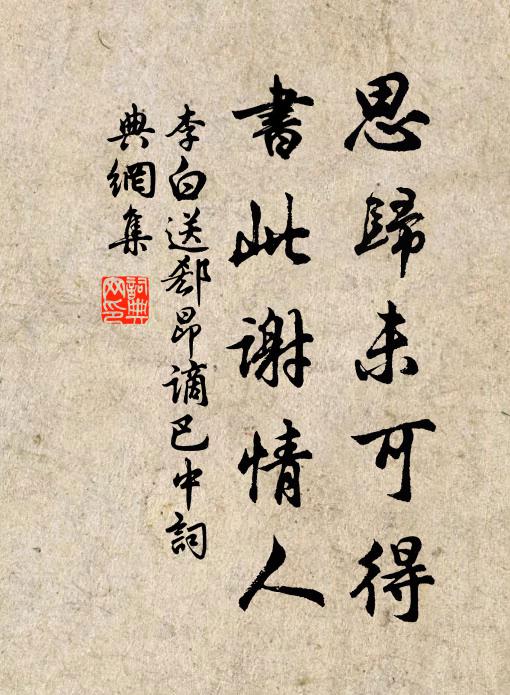 思歸未可得
書此謝情人
李白送郄昂謫巴中詞
典網集
詞典網印